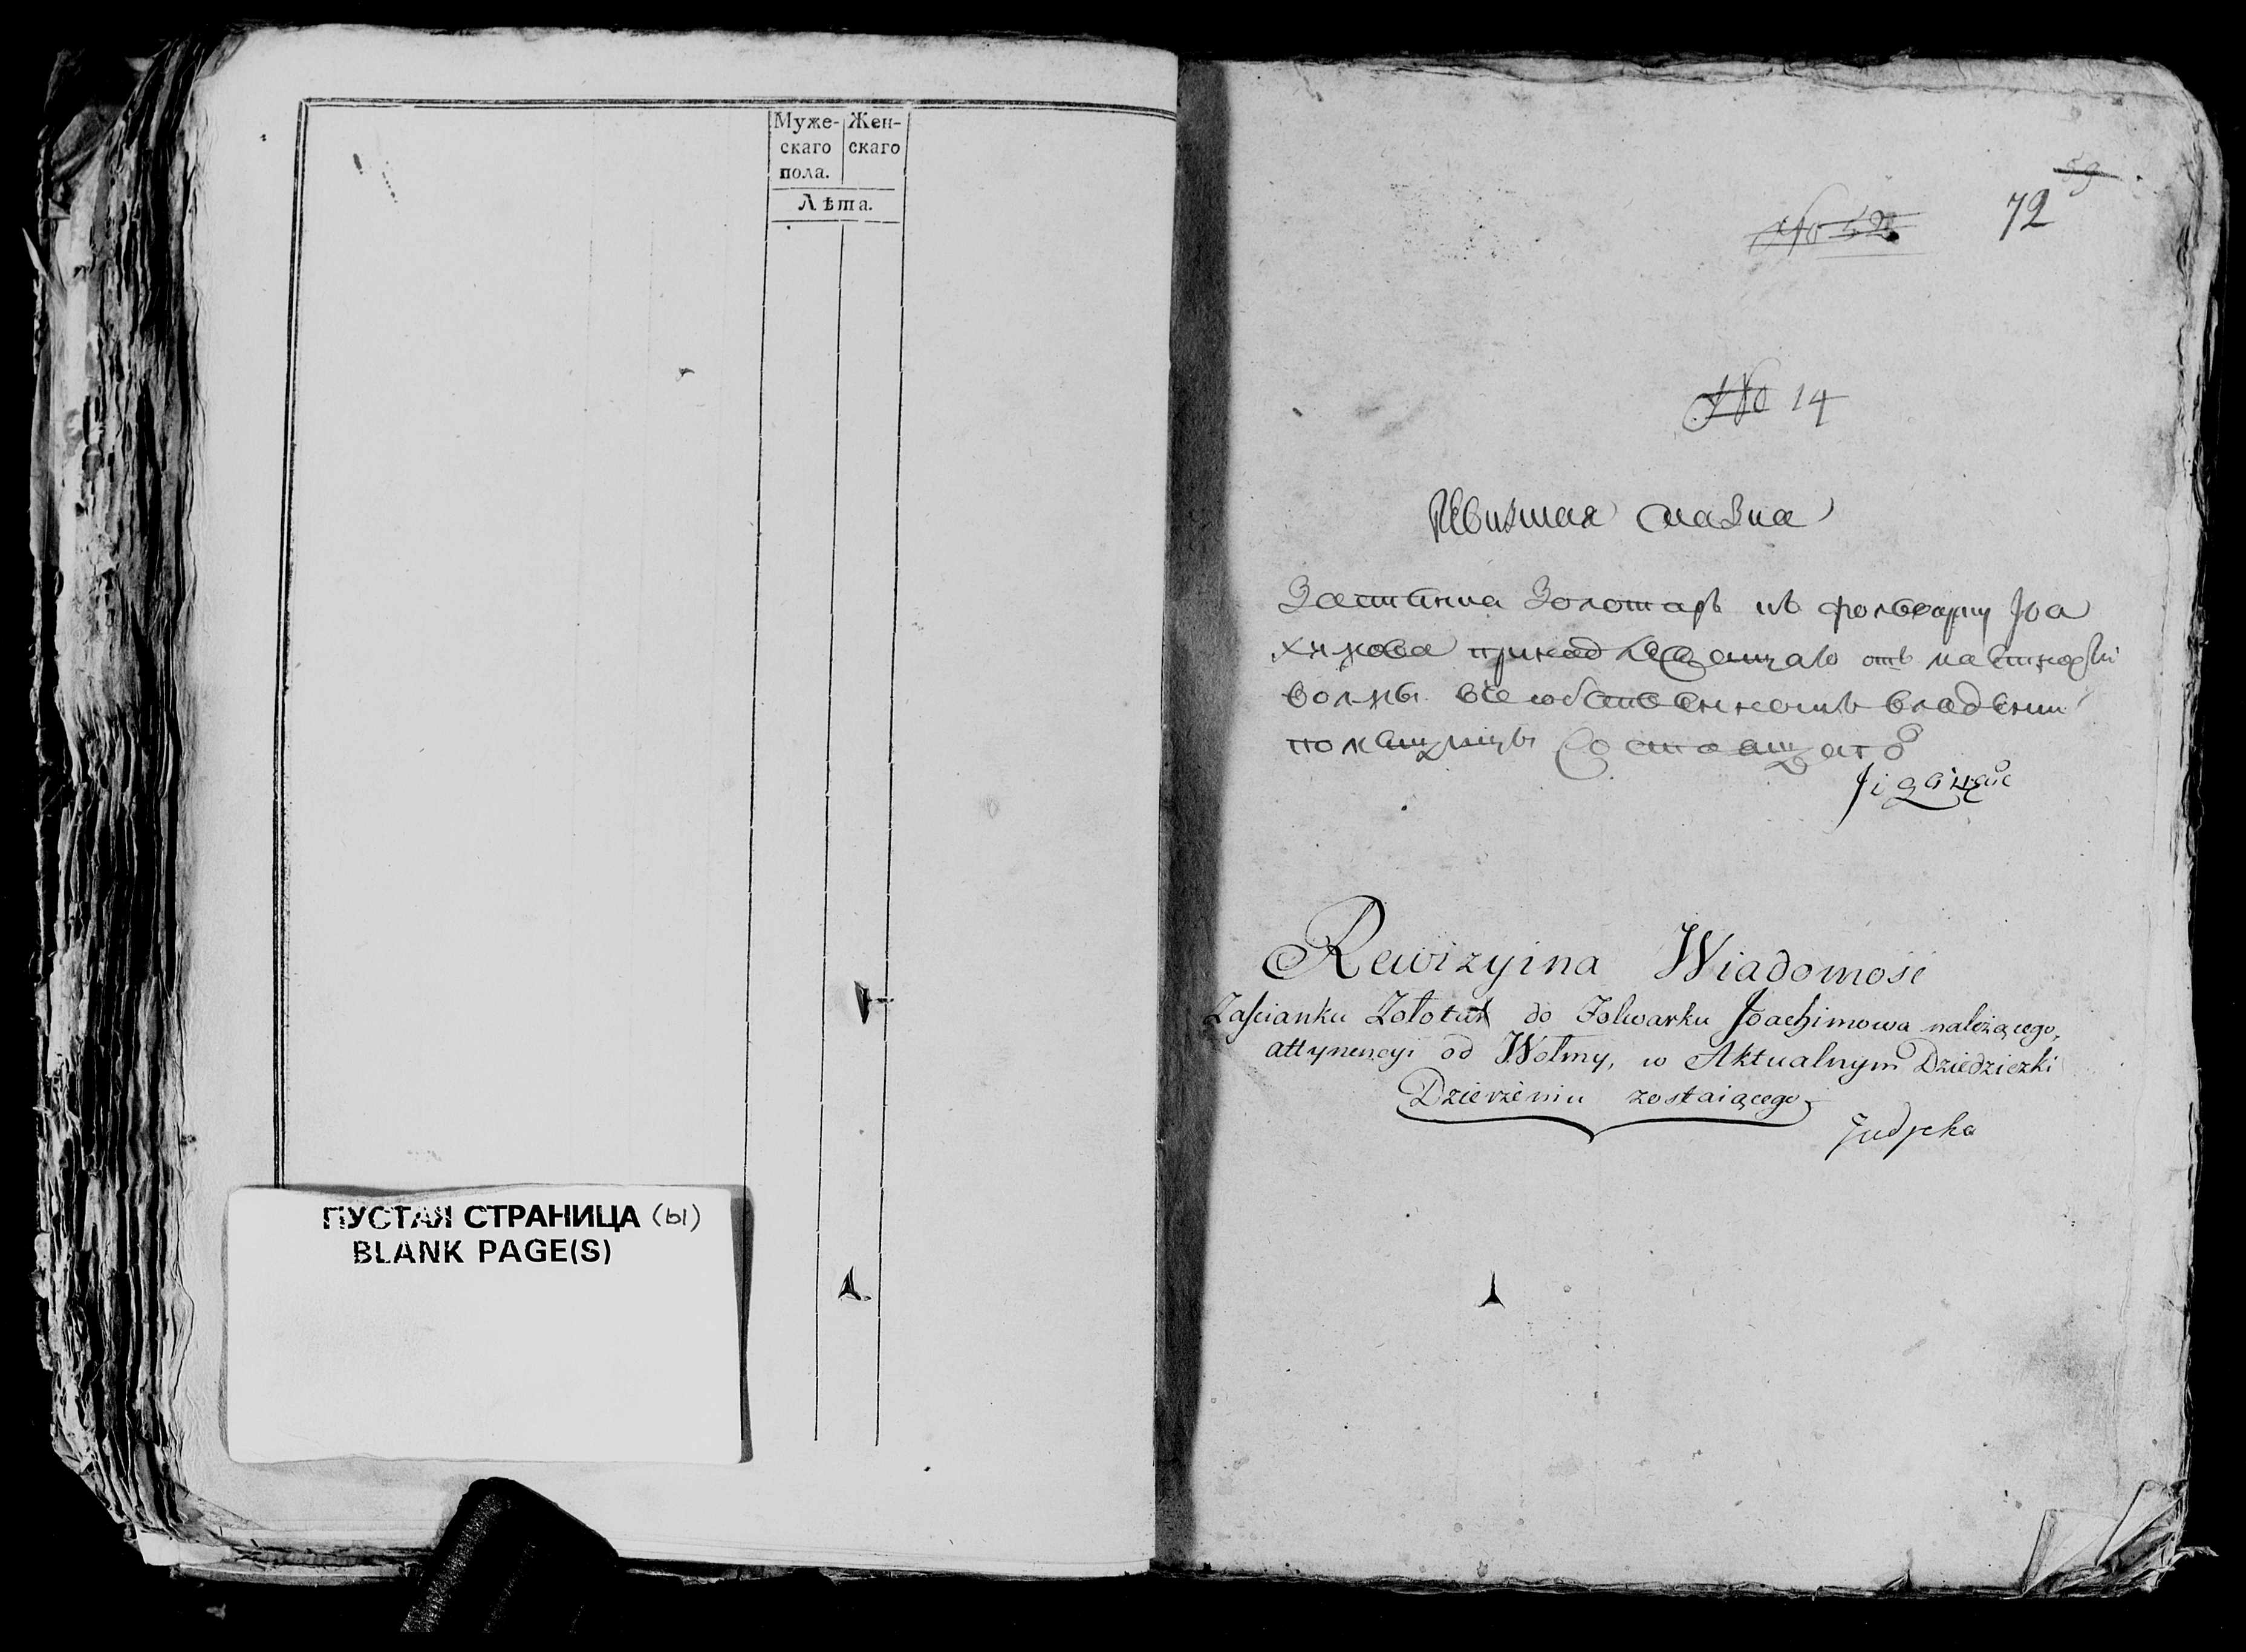 Муже- Жен-
скаго скаго
пола.
Лѣта.
ПУСТАЯ СТРАНИЦА (ы)
BLANK PAGE(S)
59
72
No 52
No 14
Ревизшая сказка
Застѣнка Золотаръ къ фольварку Іоа
химова принадлежащаго отъ
волмы владении
помѣщицы Состоящаго
Rewizyina Wiadomość
Zaścianku Zołotar do Folwarku Joachimowa należącego,
attynencyi od Wołmy, w Aktualnym Dziedziczki
Dzierżeniu zostaiącego
Judycka